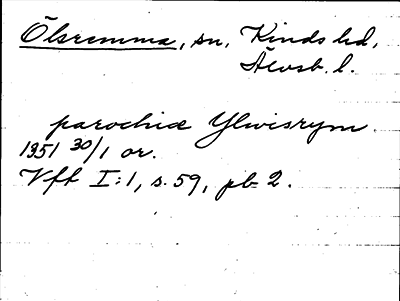 Ölsremma, sn, Kinds hd,
Älvsb. l.
parochiæ Ylwisrym.
1351 30/1 or.
Vft I:1, s. 59, pb 2.